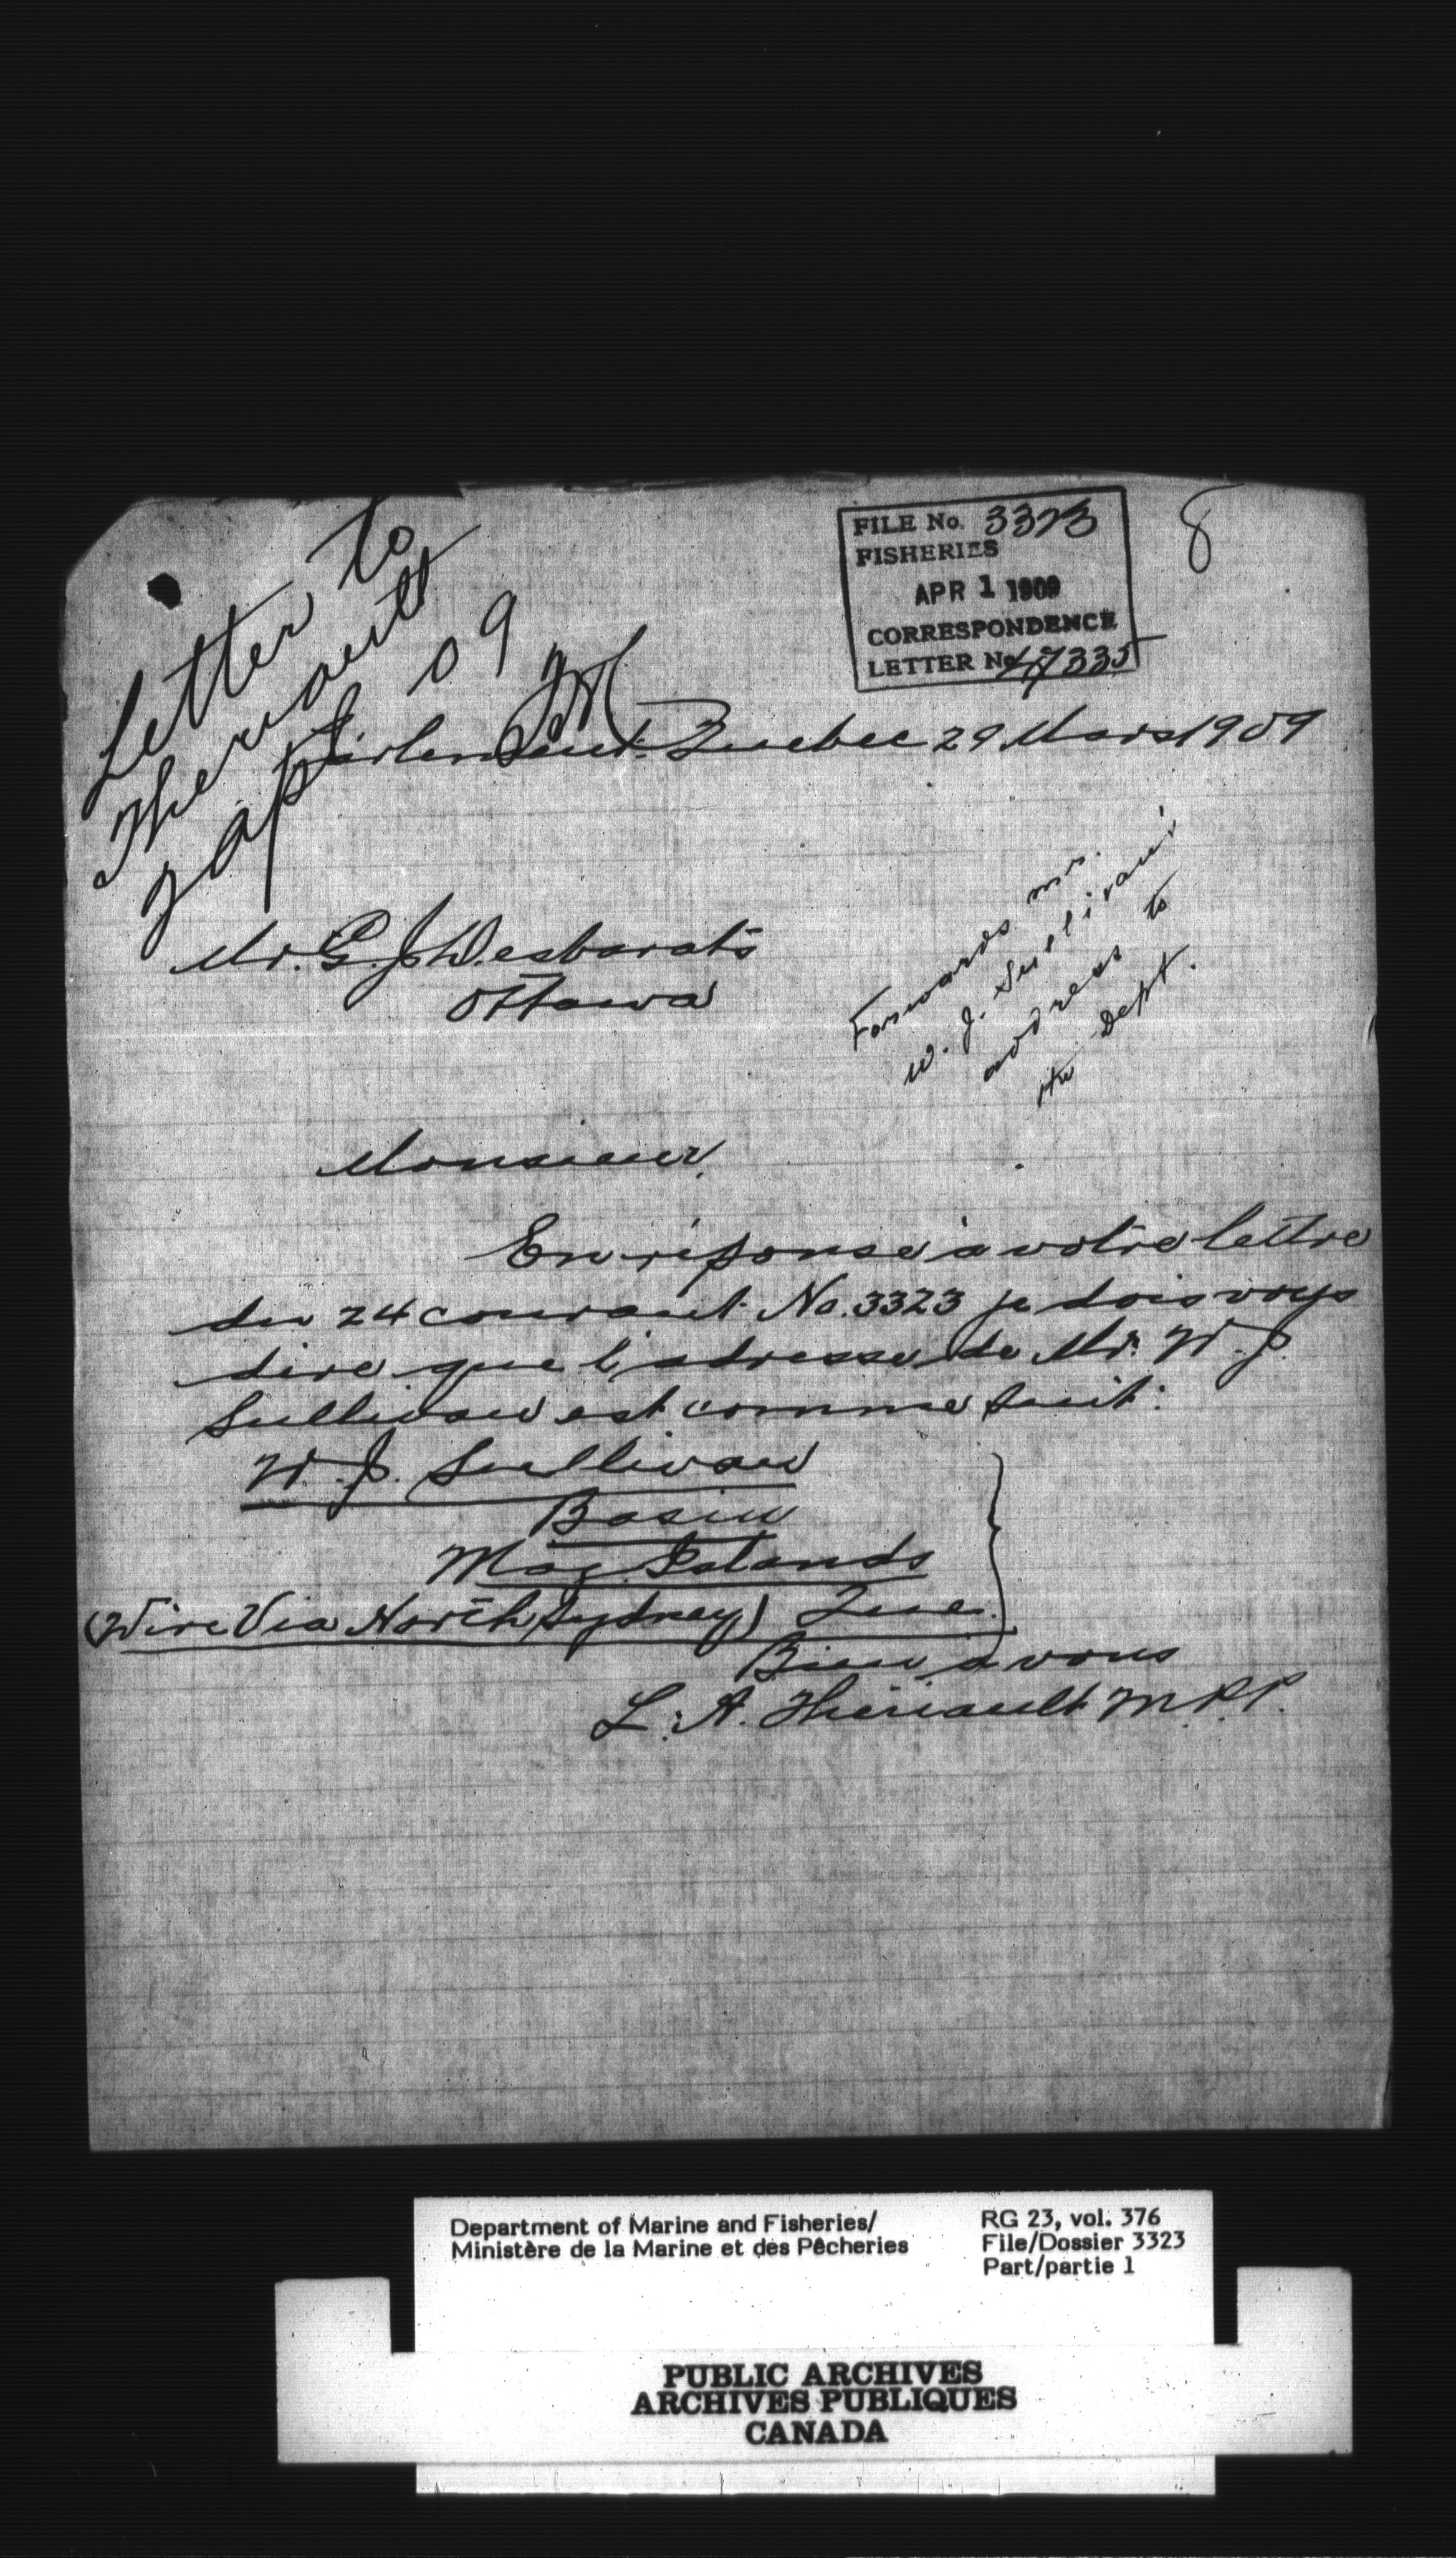 FILE No. 3323
FISHERIES
APR 1 1909
CORRESPONDENCE
LETTER No 47335
8
Letter to
Theriault
7 Apl 09
Parlement. Quebec 29 Mars 1909
Mr. G. J. Desbarats
Ottawa
Forwards Mr.
W. J. Sullivan's
address to
the Dept.
Monsieur,
En réponse à votre lettre
du 24 courant No. 3323 je dois vous
dire que l'adresse de Mr. W. J.
Sullivan est comme suit:
W. J. Sullivan
Basin
Mag. Islands
(Wire Via North Sydney) Que.
Bien à vous
L. A. Thériault M.P.P.
Department of Marine and Fisheries/
Ministère de la Marine et des Pêcheries
RG 23, vol. 376
File/Dossier 3323
Part/partie 1
PUBLIC ARCHIVES
ARCHIVES PUBLIQUES
CANADA